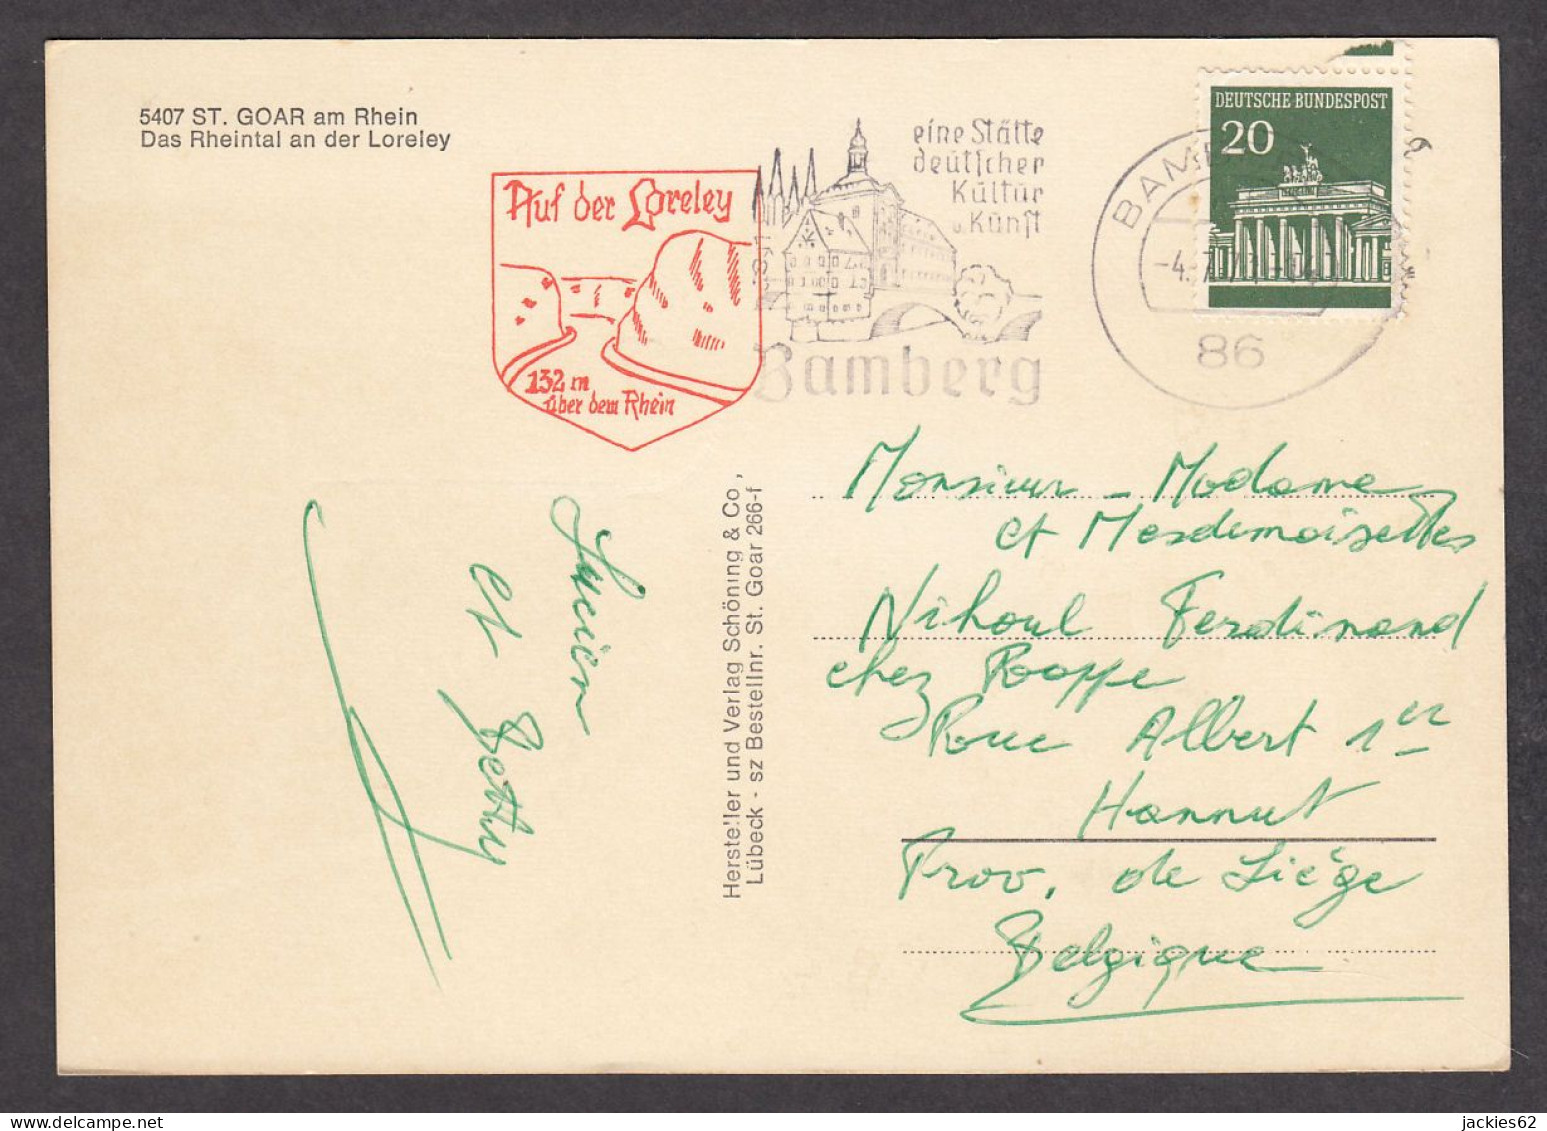 5407 ST. GOAR am Rhein
Das Rheintal an der Loreley
Auf der Loreley
132 m
über dem Rhein
eine Stätte
deutscher
Kultur
u. Kunst
Bamberg
DEUTSCHE BUNDESPOST
20
BAM
-4.
86
Hersteller und Verlag Schöning & Co.,
Lübeck - sz Bestellnr. St. Goar 266-f
Lucien
et Betty
Monsieur - Madame
et Mesdemoiselles
Nihoul Ferdinand
chez Rappe
Rue Albert 1er
Hannut
Prov. de Liège
Belgique
jackies62